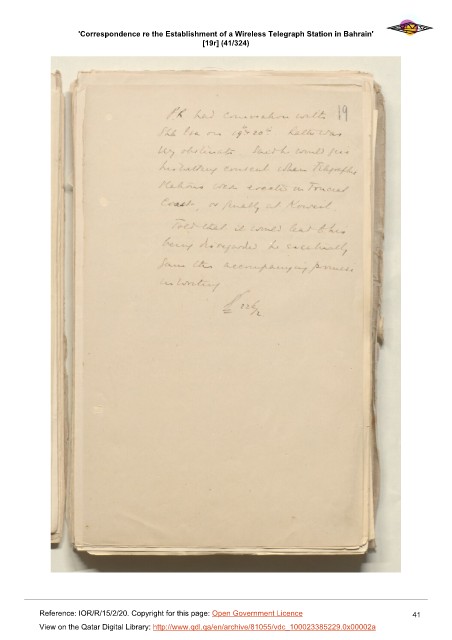 'Correspondence re the Establishment of a Wireless Telegraph Station in Bahrain'
[19r] (41/324)
19
P.R. had conversation with
Sh. Isa on 19th & 20th. Latter was
very obstinate. Said he would give
his consent when Telegraph
Stations were erected on Trucial
Coast, or finally at Koweit
Told that it would lead to his
being disregarded he eventually
gave the accompanying promise
in writing
Reference: IOR/R/15/2/20. Copyright for this page: Open Government Licence
View on the Qatar Digital Library: http://www.qdl.qa/en/archive/81055/vdc_100023385229.0x00002a
41